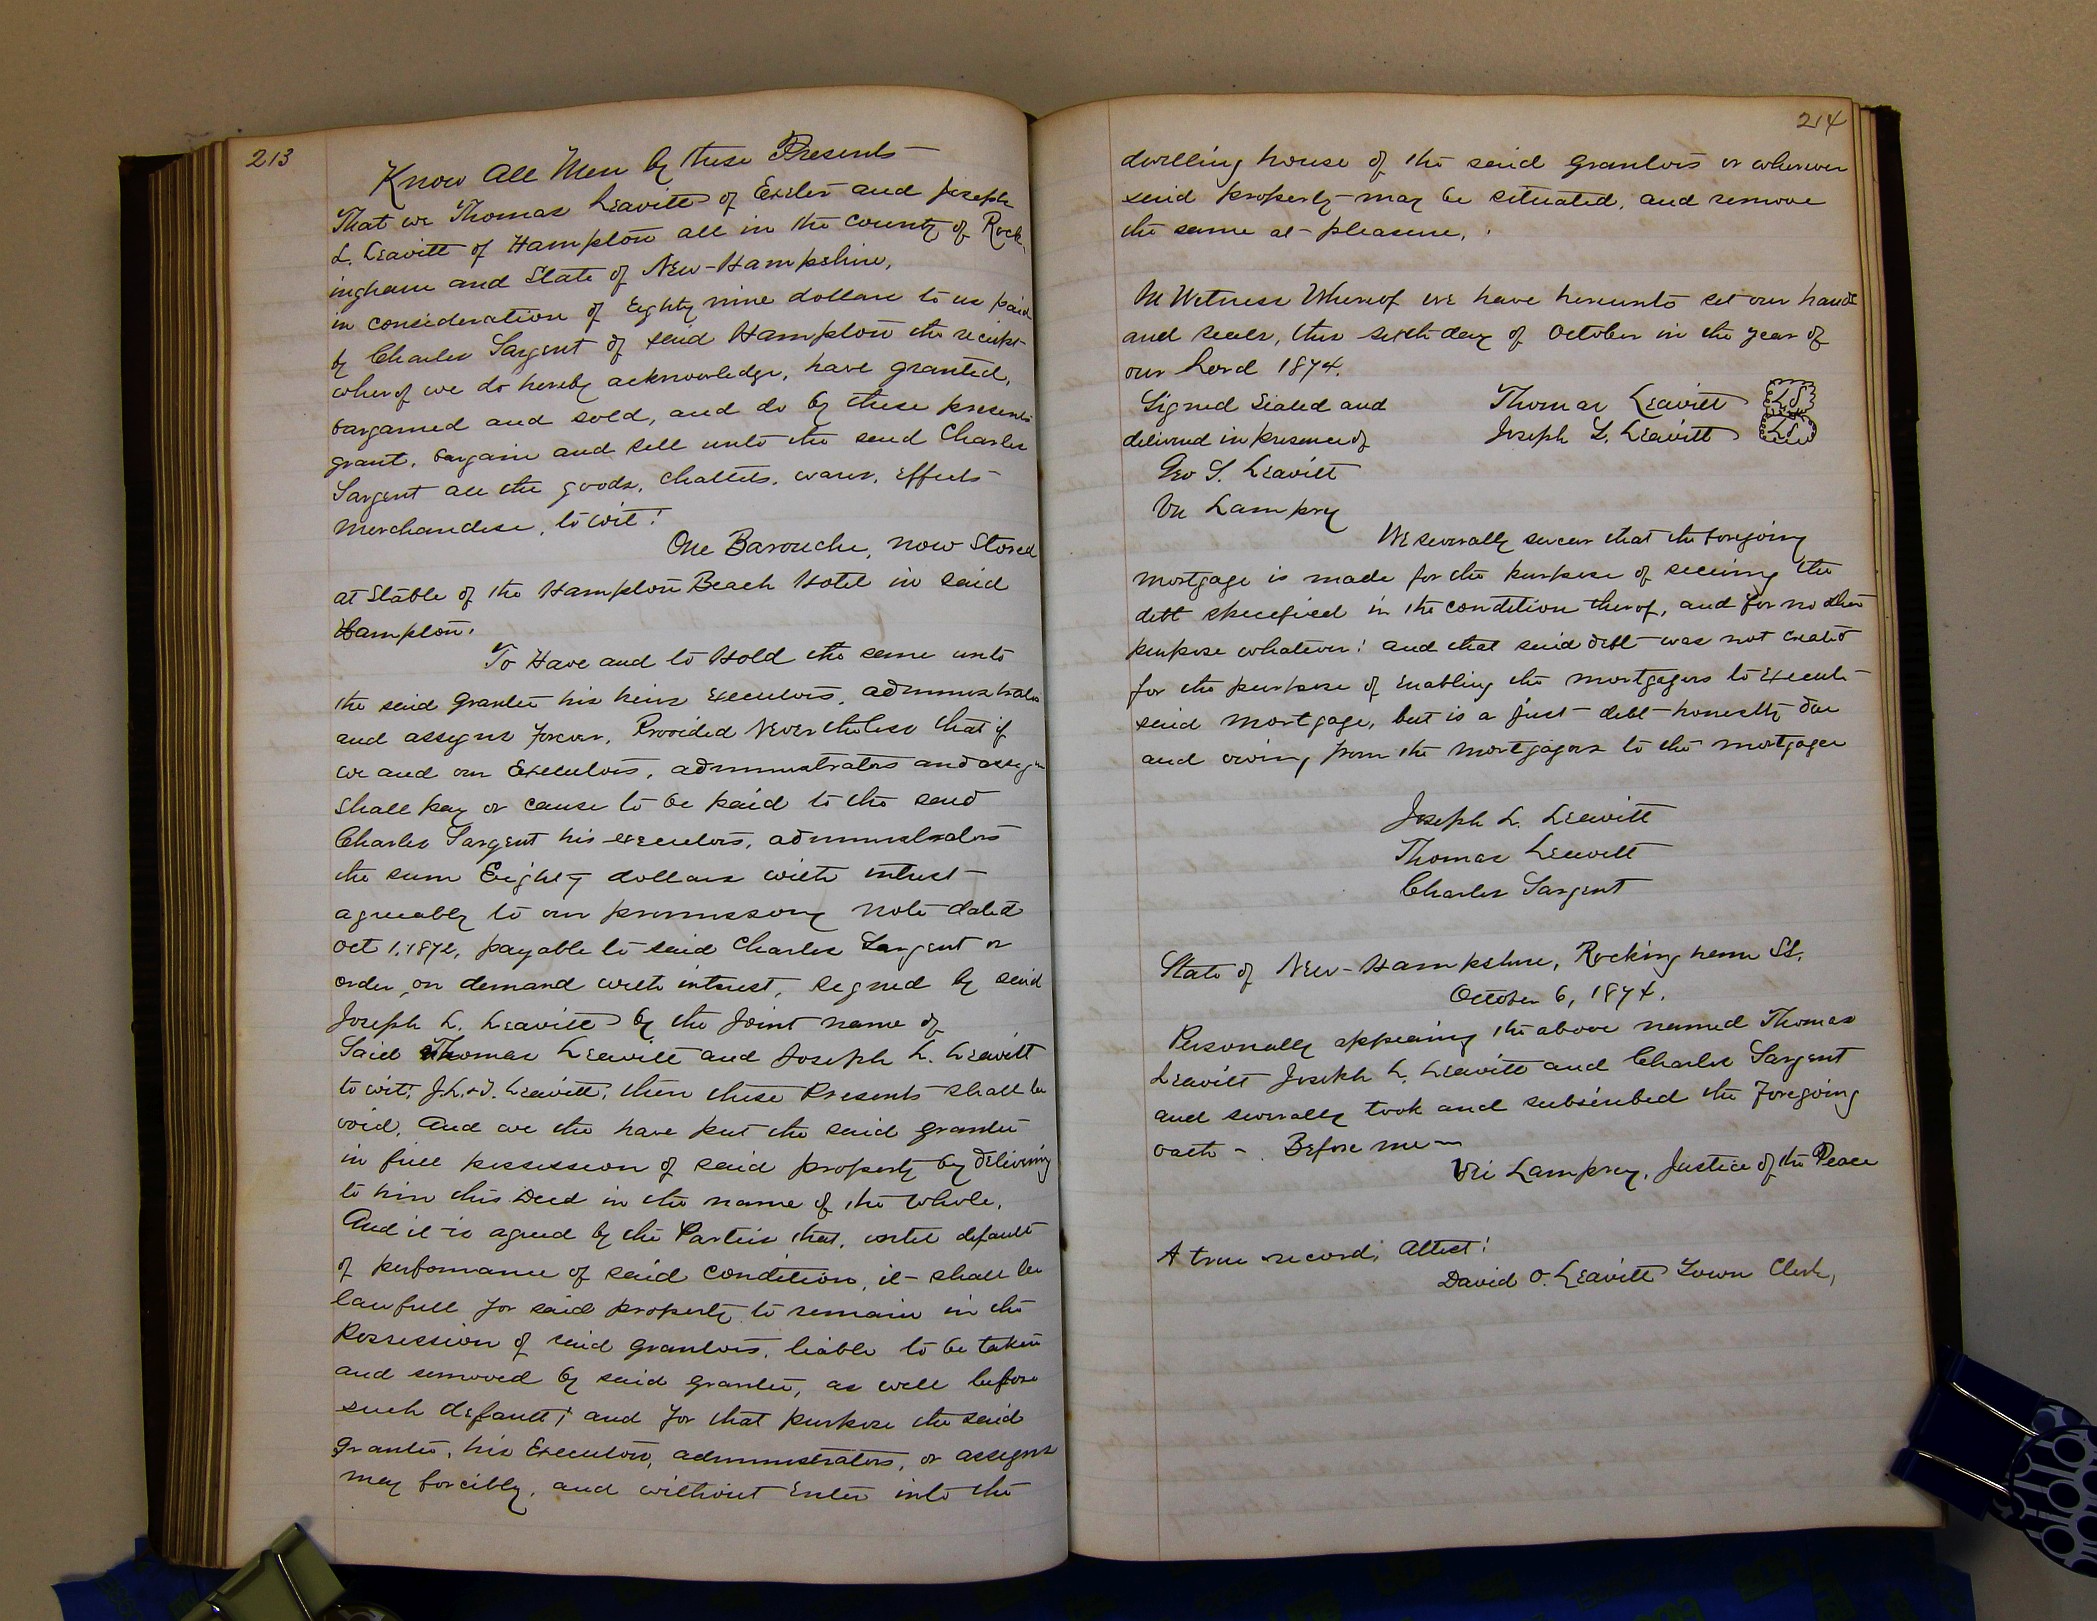 213
Know All Men by these Presents
That we Thomas Leavitt of Exeter and Joseph
L. Leavitt of Hampton all in the county of Rock-
ingham and State of New-Hampshire,
in consideration of Eighty nine dollars to us paid
by Charles Sargent of said Hampton the reciept
wherof we do hereby acknowledge, have granted,
bargained and sold, and do by these presents
grant, bargain and sell unto the said Charles
Sargent all the goods, chattels, wares, effects
Merchandise, to wit:
One Barouche, now Stored
at Stable of the Hampton Beach Hotel in said
Hampton.
To Have and to Hold the same unto
the said Grantee his heirs Executors, administrators
and assigns forever, Provided Nevertheless that if
we and our Executors, administrators and assigns
shall pay or cause to be paid to the said
Charles Sargent his executors, administrators
the sum Eighty dollars with intrest
agreeably to our promissory note dated
Oct 1, 1872, payable to said Charles Sargent or
order, on demand with interest, signed by said
Joseph L. Leavitt by the Joint name of
Said Thomas Leavitt and Joseph L. Leavitt
to wit; J.L. & T. Leavitt; then these Presents shall be
void. And we the have put the said grantee
in full possession of said property by delivering
to him this Deed in the name of the whole.
And it is agreed by the Parties that, until default
of performance of said condition, it shall be
lawfull for said property to remain in the
Possession of said grantors, liable to be taken
and removed by said grantee, as well before
such default; and for that purpose the said
Grantee, his Executors, administrators, or assigns
may forcibly, and without enter into the
214
dwelling house of the said grantors or wherever
said property may be situated, and remove
the same at pleasure,
In Witness Whereof we have hereunto set our hands
and seals, this sixth day of October in the year of
our Lord 1874.
Signed Sealed and Thomas Leavitt LS
delivered in presence of Joseph L. Leavitt LS
Geo S. Leavitt
Uri Lamprey
We severally swear that the foregoing
mortgage is made for the purpose of securing the
debt specified in the condition therof, and for no other
purpose whatever: and that said debt was not created
for the purpose of enabling the mortgagors to execute
said mortgage, but is a just debt honestly due
and owing from the Mortgagors to the mortgagee
Joseph L. Leavitt
Thomas Leavitt
Charles Sargent
State of New-Hampshire, Rockingham SS.
October 6, 1874.
Personally appearing the above named Thomas
Leavitt Joseph L. Leavitt and Charles Sargent
and severally took and subscribed the foregoing
oath - Before me
Uri Lamprey, Justice of the Peace
A true record, Attest:
David O. Leavitt Town Clerk,